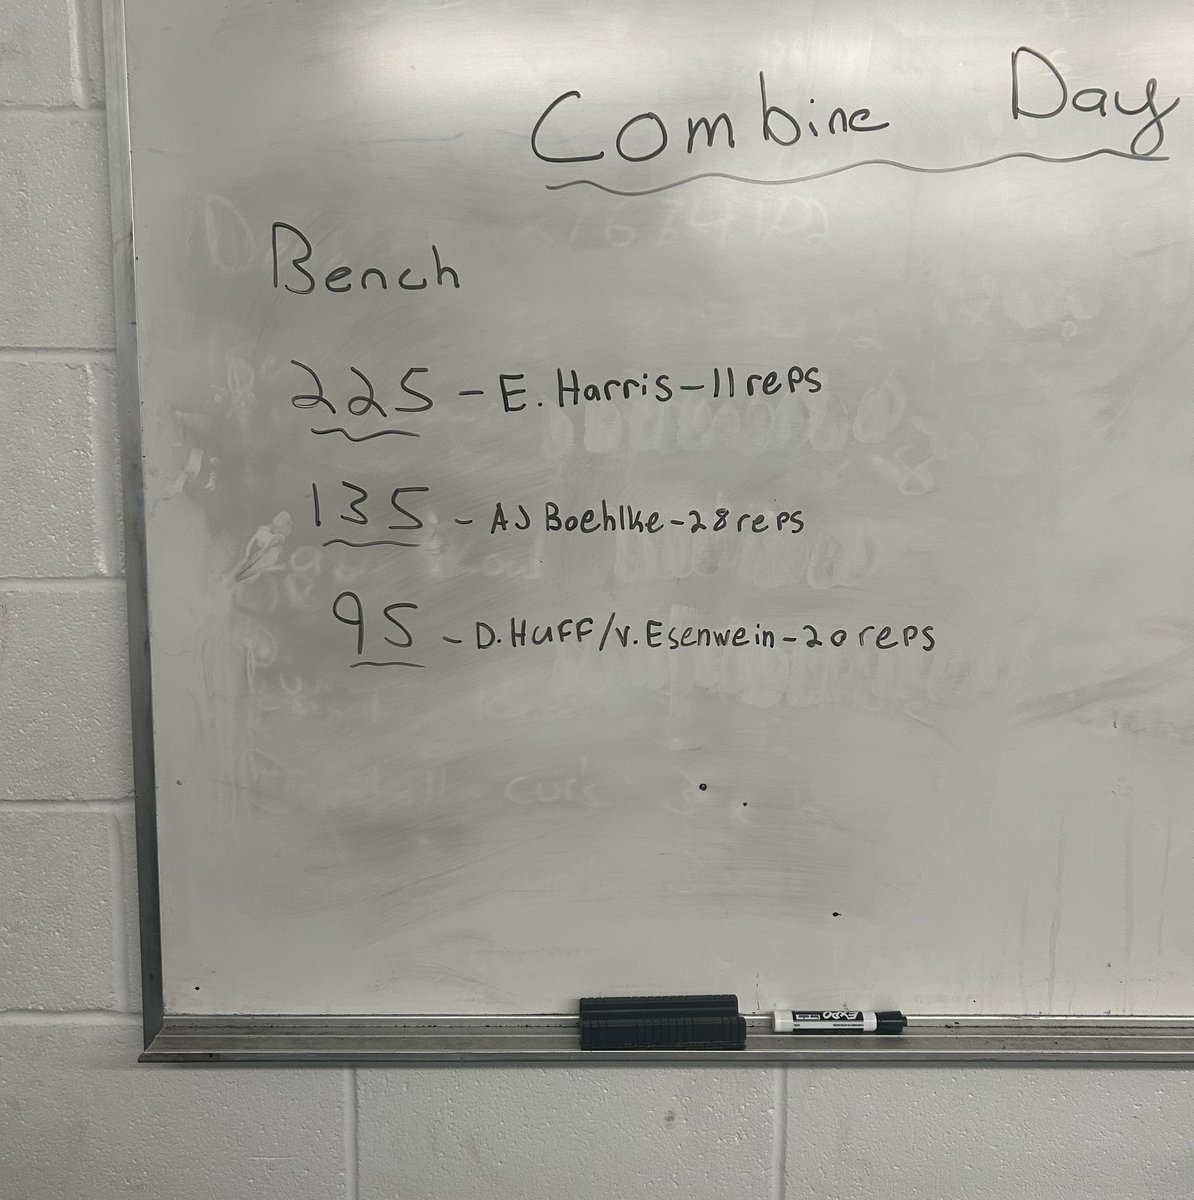 Combine Day
Bench
225 - E. Harris - 11 reps
135 - AJ Boehlke - 28 reps
95 - D. Huff/V. Esenwein - 20 reps
EXPO